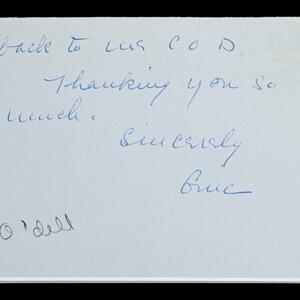 back to me C.O.D.
Thanking you so
much.
Sincerely
O'dell